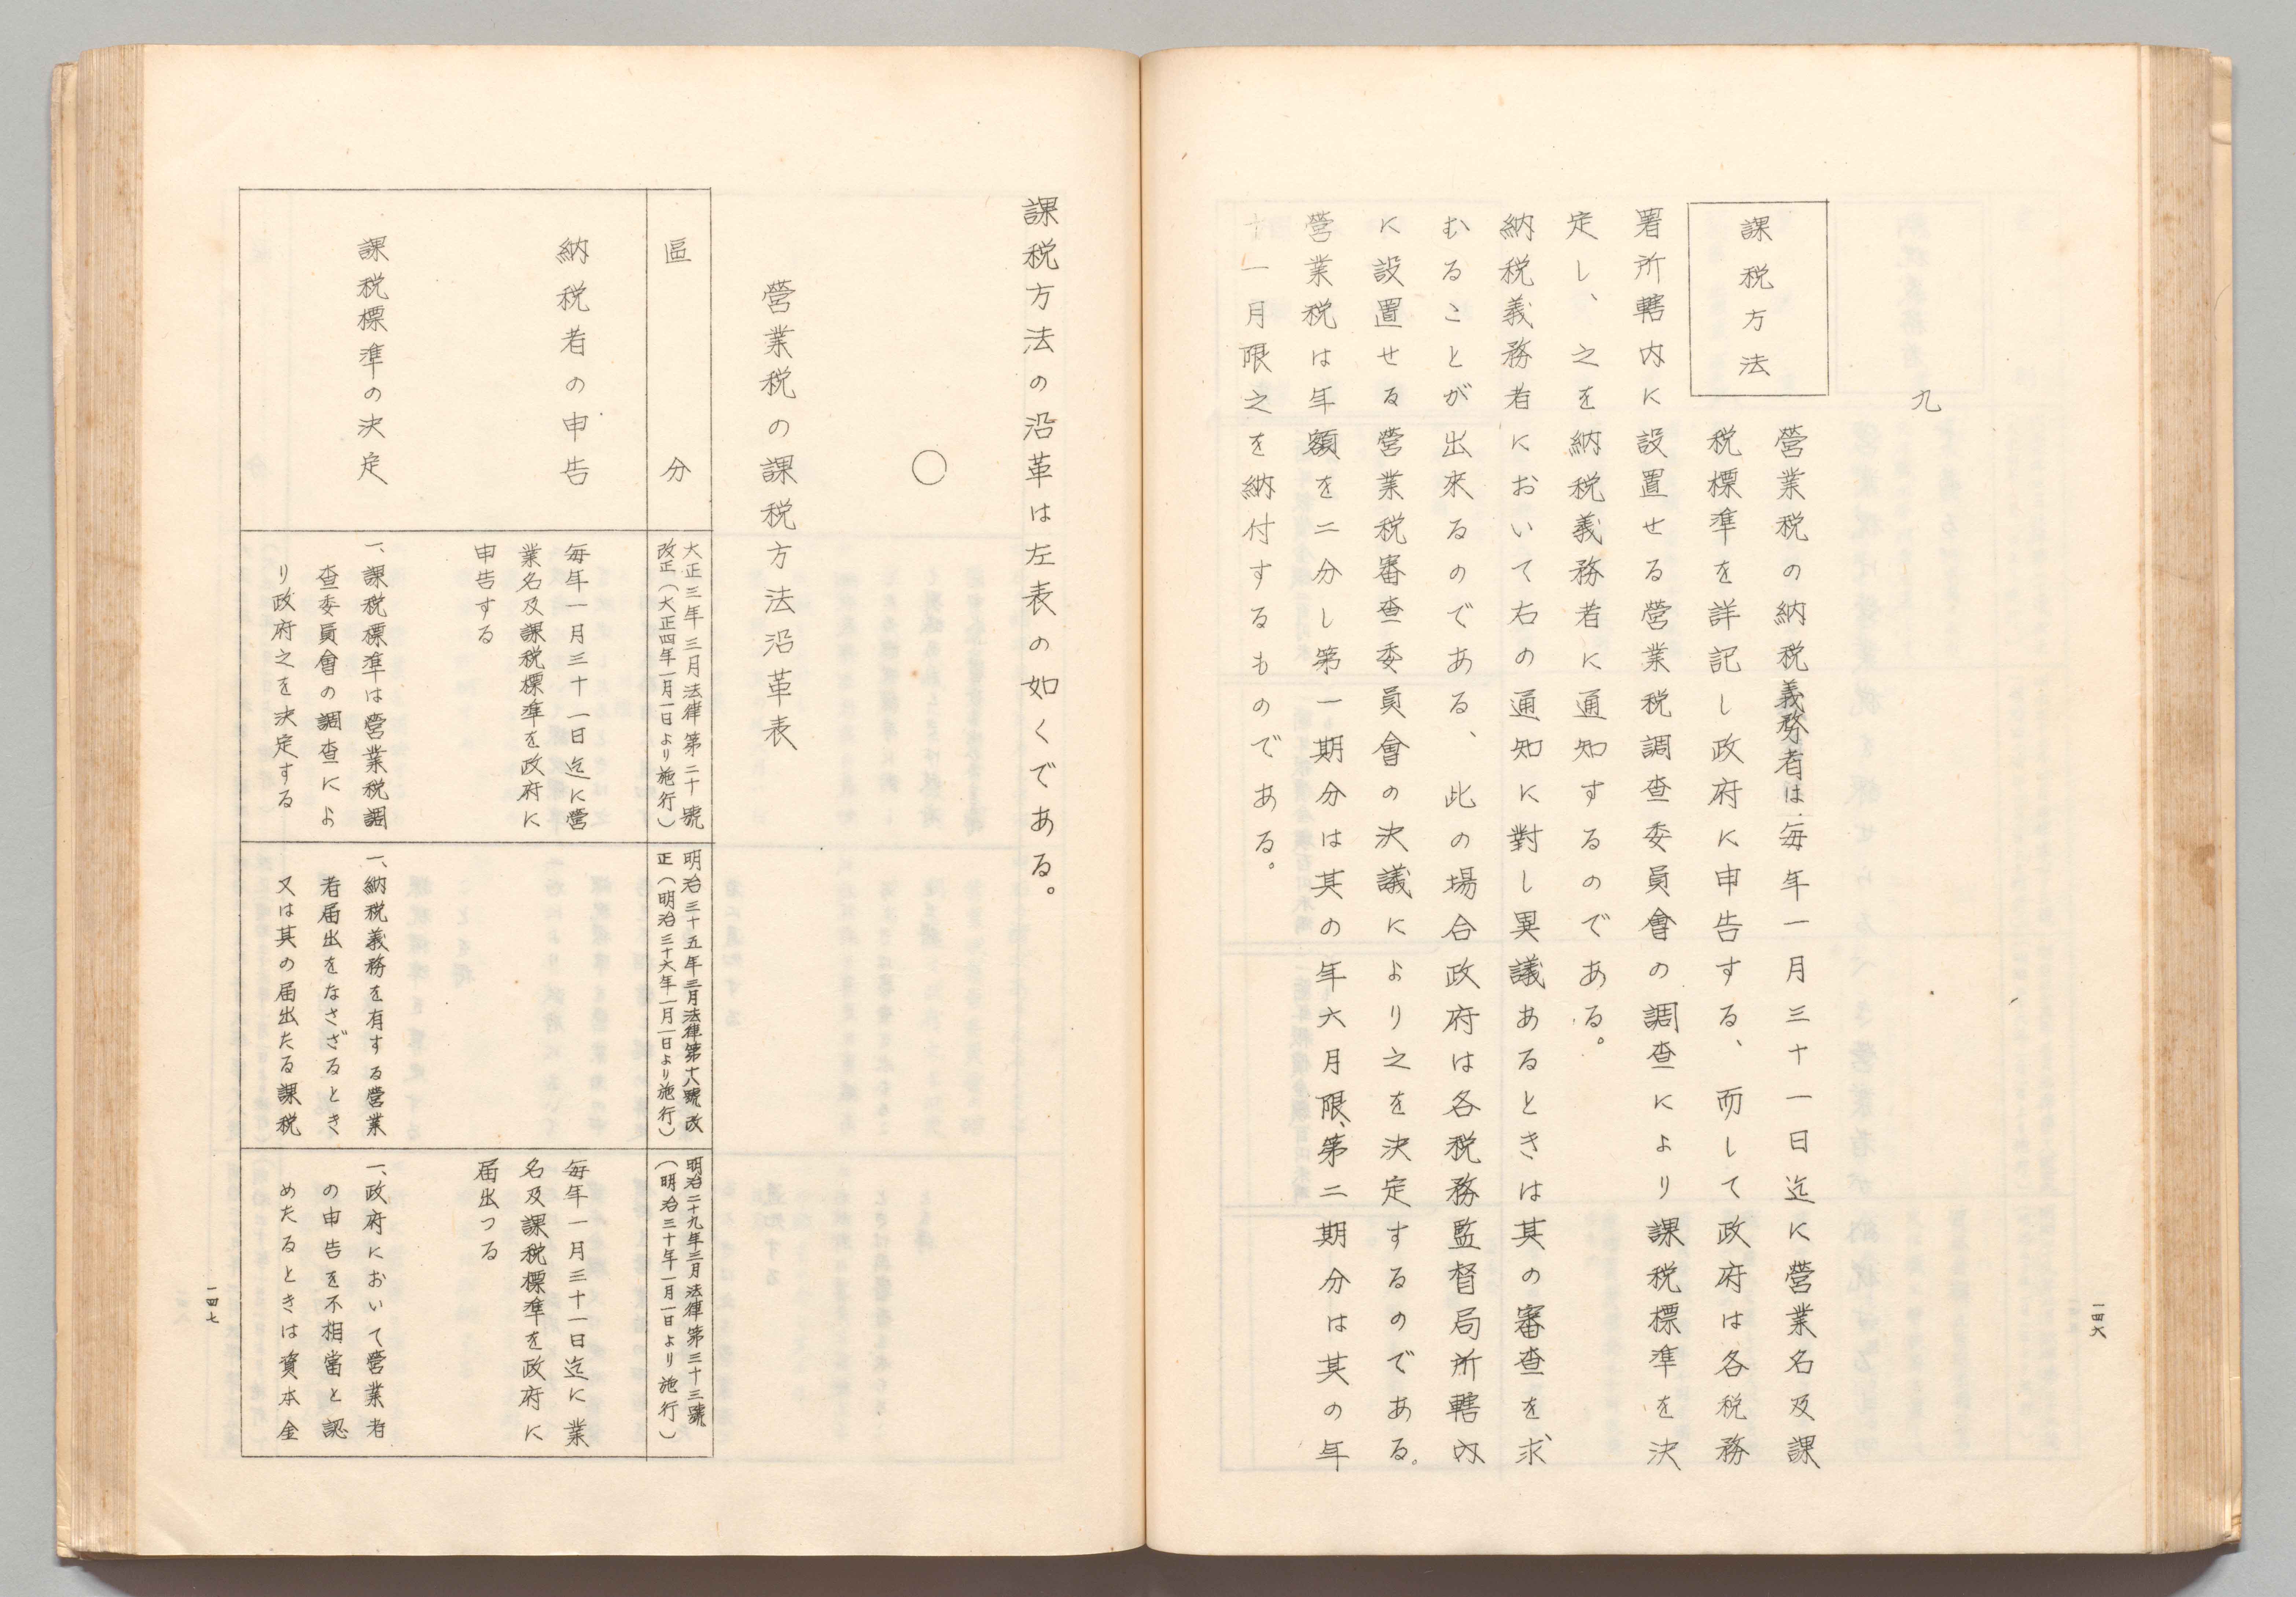 一四六
九
課税方法
營業税の納税義務者は、毎年一月三十一日迄に營業名及課
税標準を詳記し政府に申告する、而して政府は各税務
署所轄内に設置せる營業税調査委員會の調査により課税標準を決
定し、之を納税義務者に通知するのである。
納税義務者において右の通知に對し異議あるときは其の審査を求
むることが出來るのである、此の場合政府は各税務監督局所轄内
に設置せる營業税審査委員會の決議により之を決定するのである。
營業税は年額を二分し第一期分は其の年六月限、第二期分は其の年
十一月限之を納付するものである。
課税方法の沿革は左表の如くである。
○
營業税の課税方法沿革表
區分
大正三年三月法律第二十號
改正（大正四年一月一日より施行）
明治三十五年三月法律第十八號改
正（明治三十六年一月一日より施行）
明治二十九年三月法律第三十三號
（明治三十年一月一日より施行）
納税者の申告
毎年一月三十一日迄に營
業名及課税標準を政府に
申告する
毎年一月三十一日迄に業
名及課税標準を政府に
届出つる
課税標準の決定
一、課税標準は營業税調
査委員會の調査によ
り政府之を決定する
一、納税義務を有する營業
者届出をなさざるとき
又は其の届出たる課税
一、政府において營業者
の申告を不相當と認
めたるときは資本金
一四七